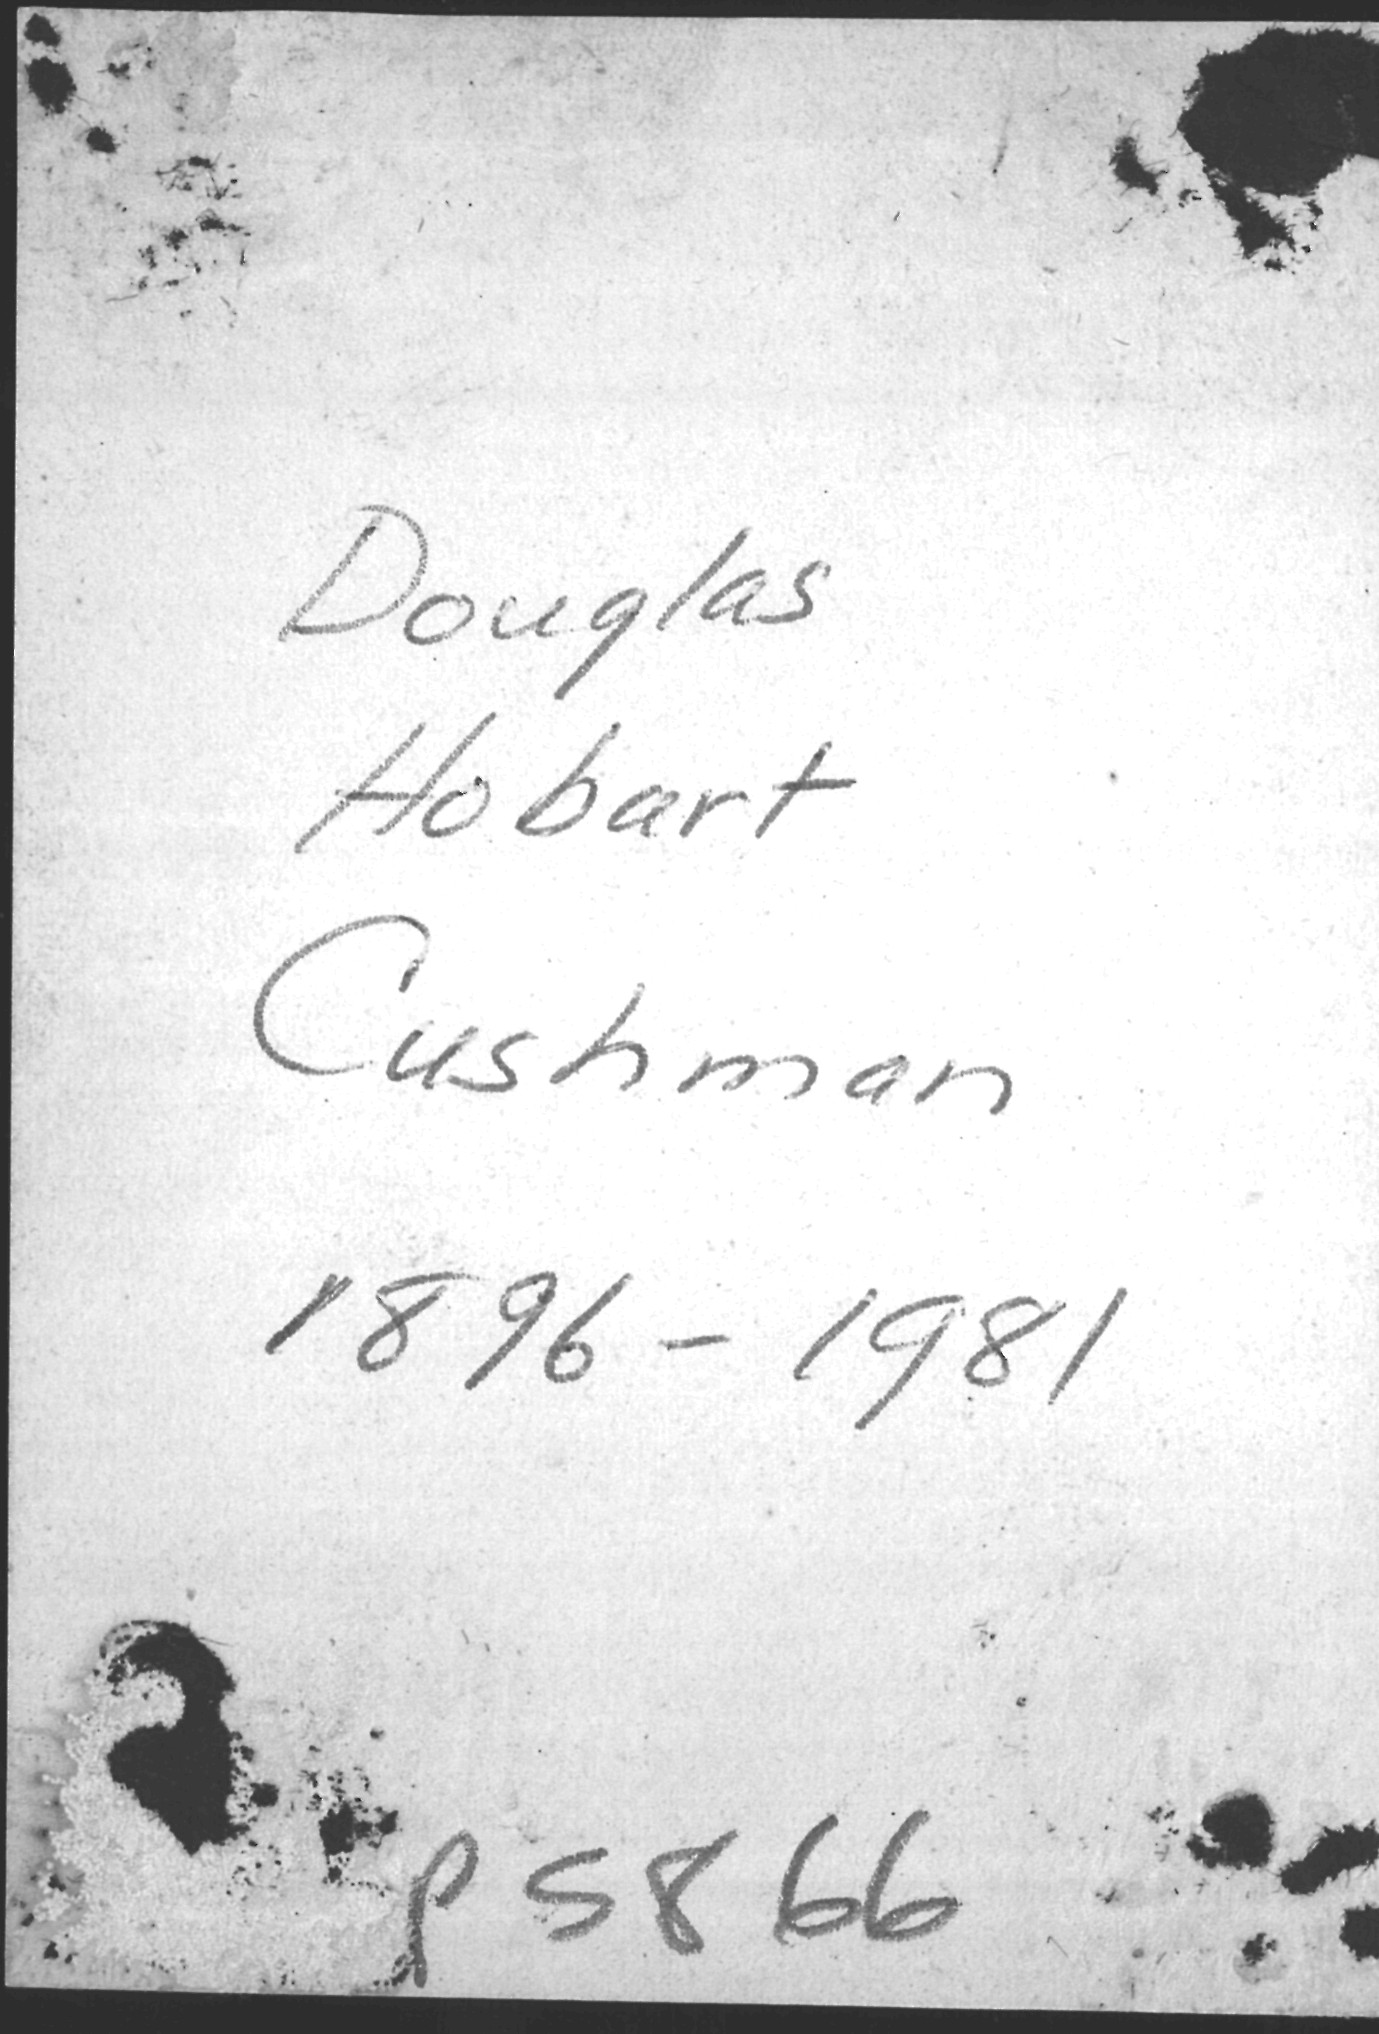 Douglas
Hobart
Cushman
1896 - 1981
P5866